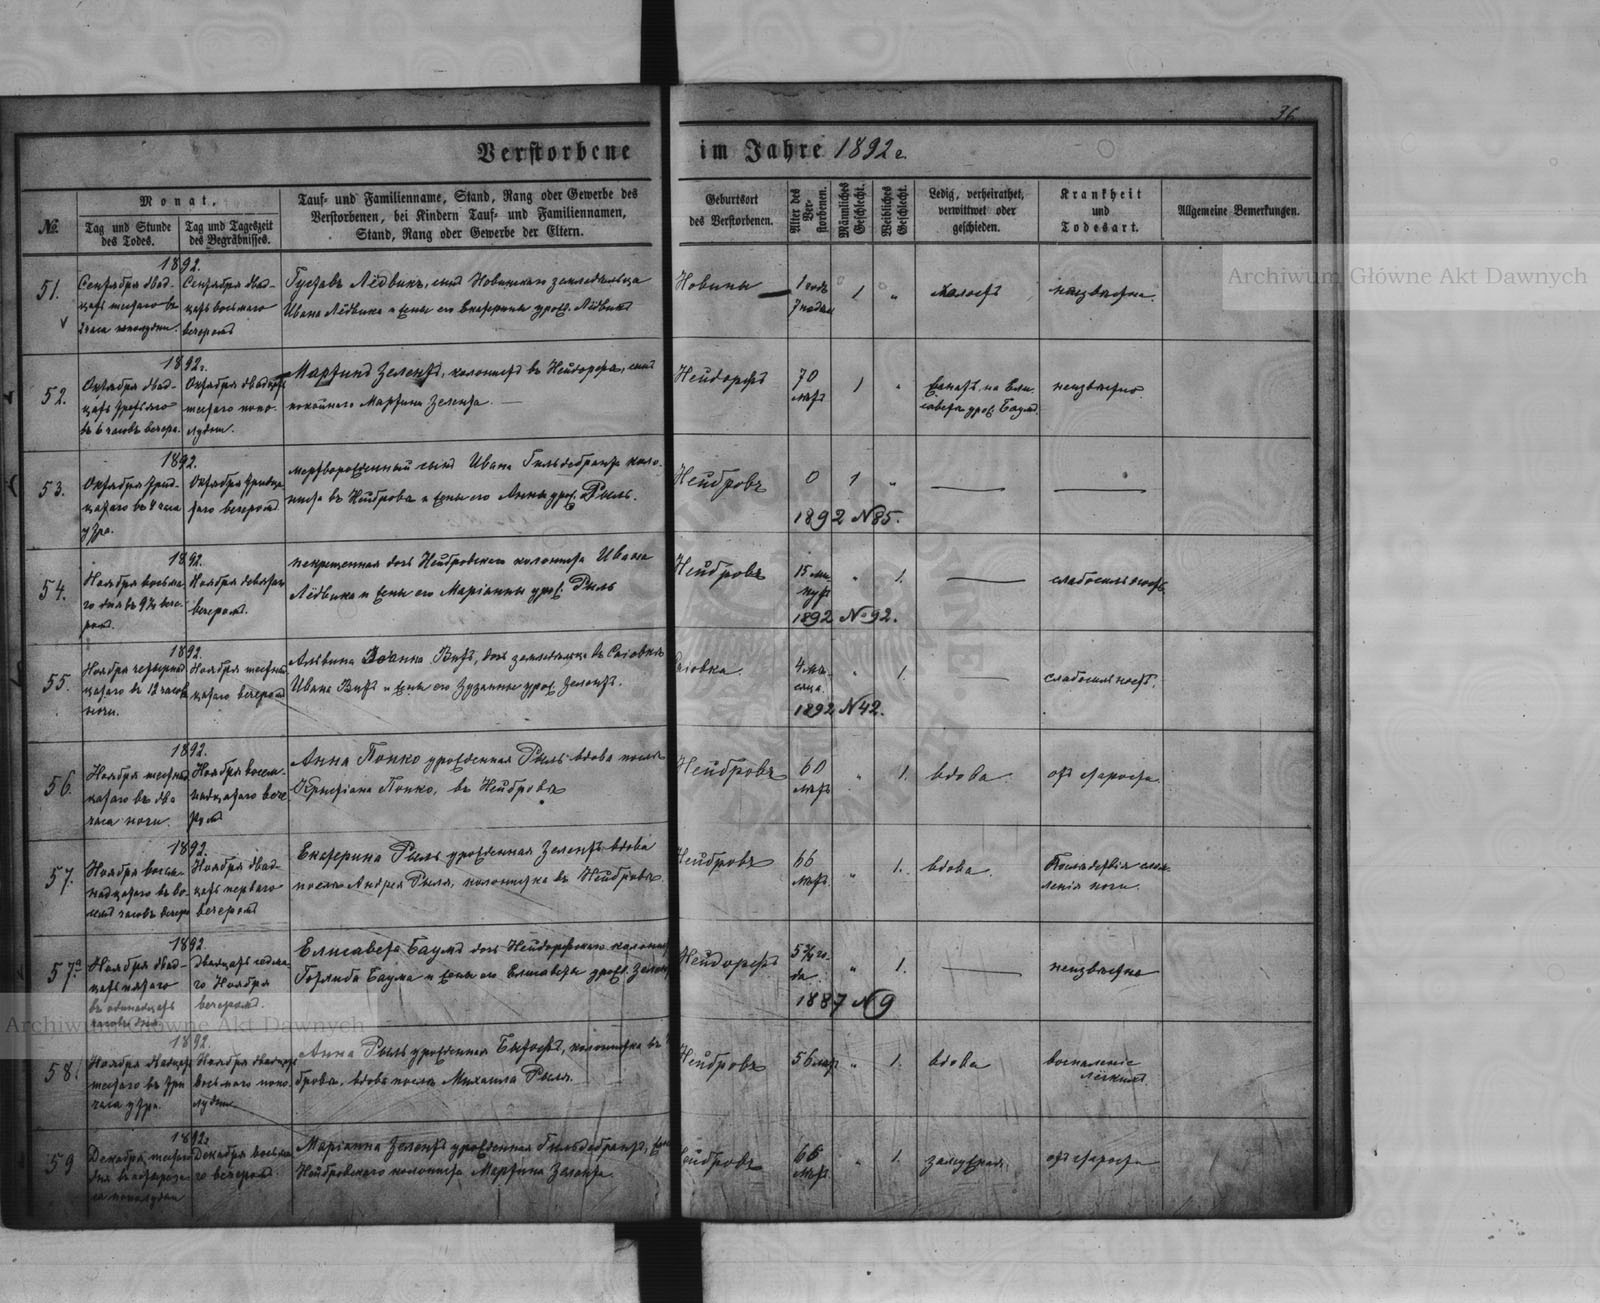 36
Verstorbene im Jahre 1892 г.
№
Monat.
Tag und Stunde des Todes.
Tag und Tageszeit des Begräbnisses.
Tauf- und Familienname, Stand, Rang oder Gewerbe des
Verstorbenen, bei Kindern Tauf- und Familiennamen,
Stand, Rang oder Gewerbe der Eltern.
Geburtsort
des Verstorbenen.
Alter des Ver-
storbenen.
Männliches
Geschlecht.
Weibliches
Geschlecht.
Ledig, verheirathet,
verwittwet oder
geschieden.
Krankheit
und
Todesart.
Allgemeine Bemerkungen.
51.
1892.
Сентября двад-
цать шестаго въ
2 часа пополудни.
Сентября двад-
цать восьмаго
вечеромъ
Густавъ Лёдвикъ, сынъ Новинскаго земледѣльца
Ивана Лёдвика и жены его Екатерины урож. Лёдвикъ
Новины
1 годъ
1
"
холостъ
неизвѣстна.
52.
1892.
Октября двад-
цать третьяго
въ 6 часовъ вечера.
Октября двадцать
шестаго попо-
лудни.
Мартинъ Зелентъ, колонистъ въ Нейдорфѣ, сынъ
покойнаго Мартина Зелента.
Нейдорфъ
70
лѣтъ
1
"
женатъ на Ели-
саветѣ урож. Баумъ.
неизвѣстно.
53.
1892.
Октября трид-
цатаго въ 4 часа
утра.
Октября тридца-
таго вечеромъ.
мертворожденный сынъ Ивана Гильдебранта коло-
ниста въ Нейбровѣ и жены его Анны урож. Рыль.
Нейбровъ
0
1
"
1892 №85.
54.
1892.
Ноября восьма-
го дня въ 9½ вече-
ромъ.
Ноября девятаго
вечеромъ.
некрещенная дочь Нейбровскаго колониста Ивана
Лёдвика и жены его Маріанны урож. Рыль
Нейбровъ
15 ми-
нутъ
"
1.
слабосильность.
1892 №92.
55.
1892.
Ноября четырнад-
цатаго въ 12 часовъ
ночи.
Ноября шестнад-
цатаго вечеромъ
Ивана Витъ и жены его Зузанны урож. Зелентъ.
4 мѣ-
сяца.
"
1.
слабосильность.
1892 №42.
56.
1892.
Ноября шестнад-
цатаго въ два
часа ночи.
Ноября восем-
надцатаго вече-
ромъ
Анна Попко урожденная Рыль вдова послѣ
Христіана Попко, въ Нейбровѣ
Нейбровъ
60
лѣтъ
"
1.
вдова
отъ старости
57.
1892.
Ноября восем-
надцатаго въ во-
семь часовъ вечера
Ноября двад-
цать перваго
вечеромъ
Екатерина Рыль урожденная Зелентъ вдова
послѣ Андрея Рыля, колонистка въ Нейбровѣ.
Нейбровъ
66
лѣтъ.
"
1.
вдова.
ноги.
57а
1892.
Ноября двад-
цать пятаго
въ одинадцать
часовъ дня
Двадцать седьма-
го Ноября
вечеромъ.
Елисавета Баумъ дочь Нейдорфскаго колониста
Готлиба Баума и жены его Елисаветы урож. Зелентъ
Нейдорфъ
"
1.
неизвѣстна
1887 №9
58.
1892.
Ноября двадцать
шестаго въ три
часа утра.
Ноября двадцать
восьмаго попо-
лудни
Анна Рыль урожденная колонистка въ Ней-
бровѣ, вдова послѣ Михаила Рыля.
Нейбровъ
56 лѣтъ
"
1.
вдова
воспаленіе
лёгкихъ
59
1892.
Декабря шестаго
дня въ четыре ча-
са пополудни
Декабря восьма-
го вечеромъ.
Маріанна Зелентъ урожденная Гильдебрантъ, жена
Нейбровскаго колониста Мартина Зелента.
Нейбровъ
66
лѣтъ.
"
1.
замужняя.
отъ старости
Archiwum Główne Akt Dawnych
Archiwum Główne Akt Dawnych